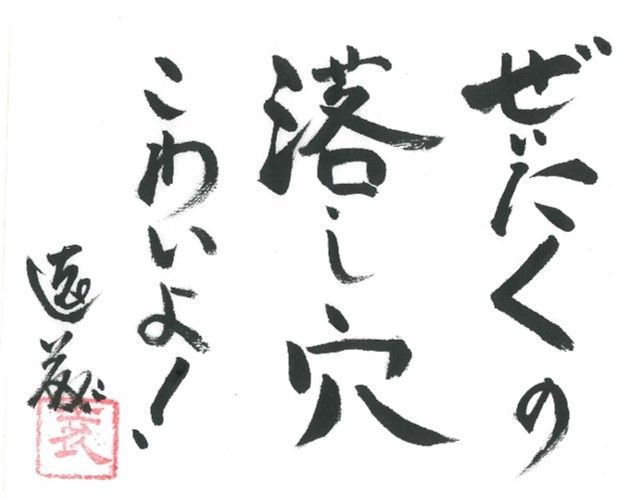 ぜいたくの
落し穴
こわいよ!